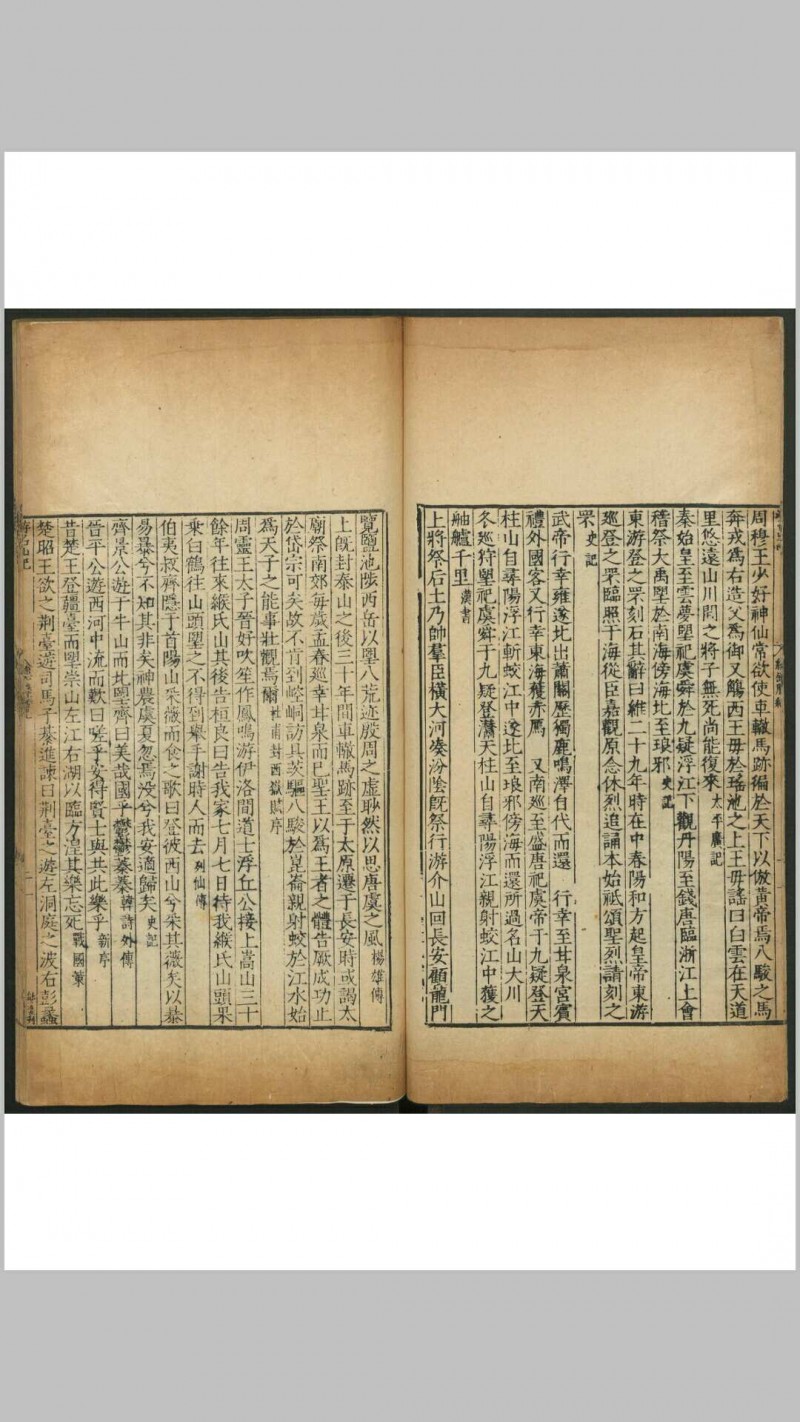 周穆王少好神仙常欲使車轍馬跡徧於天下以倣黃帝焉八駿之馬
奔戎爲右造父爲御又觴西王母於瑤池之上王母謠曰白雲在天道
里悠遠山川間之將子無死尚能復來 太平廣記
秦始皇至雲夢朢祀虞舜於九疑浮江下觀丹陽至錢唐臨浙江上會
稽祭大禹朢於南海傍海北至琅邪 史記
東游登之罘刻石其辭曰維二十九年時在中春陽和方起皇帝東游
巡登之罘臨照于海從臣嘉觀原念休烈追誦本始祗頌聖烈請刻之
罘 史記
武帝行幸雍遂北出蕭關歷獨鹿鳴澤自代而還 行幸至甘泉宮賓
禮外國客又行幸東海獲赤鴈 又南巡至盛唐祀虞帝于九疑登天
柱山自尋陽浮江斬蛟江中遂北至琅邪傍海而還所過名山大川
冬巡狩朢祀虞舜于九疑登灊天柱山自尋陽浮江親射蛟江中獲之
舳艫千里 漢書
上將祭后土乃帥羣臣橫大河湊汾陰既祭行游介山回長安顧龍門
覽鹽池陟西岳以朢八荒迹殷周之虛眇然以思唐虞之風 楊雄傳
上既封泰山之後三十年間車轍馬跡至于太原還于長安時或謁太
廟祭南郊每歲孟春巡幸甘泉而已聖王以爲王者之體告厥成功止
於岱宗可矣故不肯到崆峒訪具茨驅八駿於崑崙親射蛟於江水始
爲天子之能事壯觀焉爾 杜甫封西嶽賦序
周靈王太子晉好吹笙作鳳鳴游伊洛間道士浮丘公接上嵩山三十
餘年往來緱氏山其後告桓良曰告我家七月七日待我緱氏山頭果
乘白鶴往山頭朢之不得到舉手謝時人而去 列仙傳
伯夷叔齊隱于首陽山采薇而食之歌曰登彼西山兮采其薇矣以暴
易暴兮不知其非矣神農虞夏忽焉没兮我安適歸矣 史記
齊景公遊于牛山而北朢齊曰美哉國乎鬱鬱蓁蓁 韓詩外傳
晉平公遊西河中流而歎曰嗟乎安得賢士與共此樂乎 新序
昔楚王登彊臺而朢崇山左江右湖以臨方湟其樂忘死 戰國策
楚昭王欲之荆臺遊司馬子綦進諫曰荆臺之游左洞庭之波右彭蠡